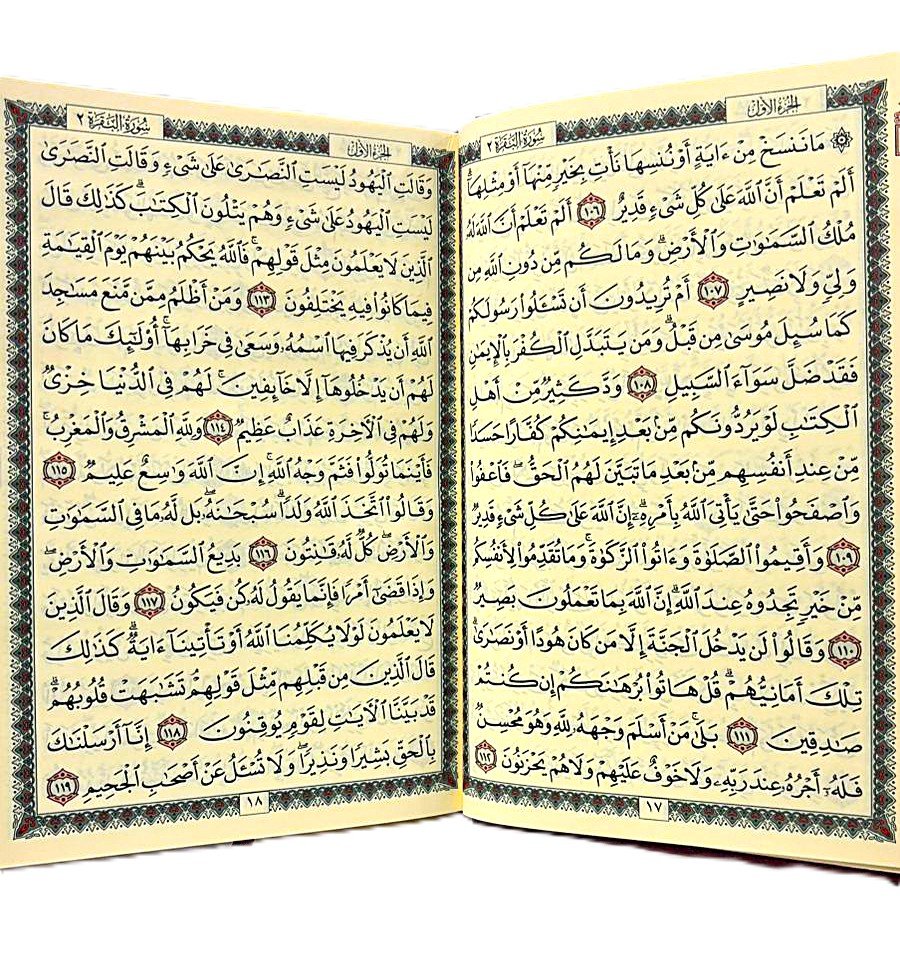 الجزء الأول
سورة البقرة ٢
۞ مَا نَنسَخْ مِنْ ءَايَةٍ أَوْ نُنسِهَا نَأْتِ بِخَيْرٍ مِّنْهَآ أَوْ مِثْلِهَآۗ
أَلَمْ تَعْلَمْ أَنَّ ٱللَّهَ عَلَىٰ كُلِّ شَىْءٍ قَدِيرٌ ١٠٦ أَلَمْ تَعْلَمْ أَنَّ ٱللَّهَ لَهُۥ
مُلْكُ ٱلسَّمَـٰوَٰتِ وَٱلْأَرْضِۗ وَمَا لَكُم مِّن دُونِ ٱللَّهِ مِن
وَلِىٍّ وَلَا نَصِيرٍ ١٠٧ أَمْ تُرِيدُونَ أَن تَسْـَٔلُوا۟ رَسُولَكُمْ
كَمَا سُئِلَ مُوسَىٰ مِن قَبْلُۗ وَمَن يَتَبَدَّلِ ٱلْكُفْرَ بِٱلْإِيمَـٰنِ
فَقَدْ ضَلَّ سَوَآءَ ٱلسَّبِيلِ ١٠٨ وَدَّ كَثِيرٌ مِّنْ أَهْلِ
ٱلْكِتَـٰبِ لَوْ يَرُدُّونَكُم مِّنۢ بَعْدِ إِيمَـٰنِكُمْ كُفَّارًا حَسَدًا
مِّنْ عِندِ أَنفُسِهِم مِّنۢ بَعْدِ مَا تَبَيَّنَ لَهُمُ ٱلْحَقُّۖ فَٱعْفُوا۟
وَٱصْفَحُوا۟ حَتَّىٰ يَأْتِىَ ٱللَّهُ بِأَمْرِهِۦٓۗ إِنَّ ٱللَّهَ عَلَىٰ كُلِّ شَىْءٍ قَدِيرٌ
١٠٩ وَأَقِيمُوا۟ ٱلصَّلَوٰةَ وَءَاتُوا۟ ٱلزَّكَوٰةَۚ وَمَا تُقَدِّمُوا۟ لِأَنفُسِكُم
مِّنْ خَيْرٍ تَجِدُوهُ عِندَ ٱللَّهِۗ إِنَّ ٱللَّهَ بِمَا تَعْمَلُونَ بَصِيرٌ
١١٠ وَقَالُوا۟ لَن يَدْخُلَ ٱلْجَنَّةَ إِلَّا مَن كَانَ هُودًا أَوْ نَصَـٰرَىٰۗ
تِلْكَ أَمَانِيُّهُمْۗ قُلْ هَاتُوا۟ بُرْهَـٰنَكُمْ إِن كُنتُمْ
صَـٰدِقِينَ ١١١ بَلَىٰۚ مَنْ أَسْلَمَ وَجْهَهُۥ لِلَّهِ وَهُوَ مُحْسِنٌ
فَلَهُۥٓ أَجْرُهُۥ عِندَ رَبِّهِۦ وَلَا خَوْفٌ عَلَيْهِمْ وَلَا هُمْ يَحْزَنُونَ ١١٢
١٧
الجزء الأول
سورة البقرة ٢
وَقَالَتِ ٱلْيَهُودُ لَيْسَتِ ٱلنَّصَـٰرَىٰ عَلَىٰ شَىْءٍ وَقَالَتِ ٱلنَّصَـٰرَىٰ
لَيْسَتِ ٱلْيَهُودُ عَلَىٰ شَىْءٍ وَهُمْ يَتْلُونَ ٱلْكِتَـٰبَۗ كَذَٰلِكَ قَالَ
ٱلَّذِينَ لَا يَعْلَمُونَ مِثْلَ قَوْلِهِمْۚ فَٱللَّهُ يَحْكُمُ بَيْنَهُمْ يَوْمَ ٱلْقِيَـٰمَةِ
فِيمَا كَانُوا۟ فِيهِ يَخْتَلِفُونَ ١١٣ وَمَنْ أَظْلَمُ مِمَّن مَّنَعَ مَسَـٰجِدَ
ٱللَّهِ أَن يُذْكَرَ فِيهَا ٱسْمُهُۥ وَسَعَىٰ فِى خَرَابِهَآۚ أُو۟لَـٰٓئِكَ مَا كَانَ
لَهُمْ أَن يَدْخُلُوهَآ إِلَّا خَآئِفِينَۚ لَهُمْ فِى ٱلدُّنْيَا خِزْىٌ
وَلَهُمْ فِى ٱلْـَٔاخِرَةِ عَذَابٌ عَظِيمٌ ١١٤ وَلِلَّهِ ٱلْمَشْرِقُ وَٱلْمَغْرِبُۚ
فَأَيْنَمَا تُوَلُّوا۟ فَثَمَّ وَجْهُ ٱللَّهِۚ إِنَّ ٱللَّهَ وَٰسِعٌ عَلِيمٌ ١١٥
وَقَالُوا۟ ٱتَّخَذَ ٱللَّهُ وَلَدًاۗ سُبْحَـٰنَهُۥۖ بَل لَّهُۥ مَا فِى ٱلسَّمَـٰوَٰتِ
وَٱلْأَرْضِۖ كُلٌّ لَّهُۥ قَـٰنِتُونَ ١١٦ بَدِيعُ ٱلسَّمَـٰوَٰتِ وَٱلْأَرْضِۖ
وَإِذَا قَضَىٰٓ أَمْرًا فَإِنَّمَا يَقُولُ لَهُۥ كُن فَيَكُونُ ١١٧ وَقَالَ ٱلَّذِينَ
لَا يَعْلَمُونَ لَوْلَا يُكَلِّمُنَا ٱللَّهُ أَوْ تَأْتِينَآ ءَايَةٌۗ كَذَٰلِكَ
قَالَ ٱلَّذِينَ مِن قَبْلِهِم مِّثْلَ قَوْلِهِمْۘ تَشَـٰبَهَتْ قُلُوبُهُمْۗ
قَدْ بَيَّنَّا ٱلْـَٔايَـٰتِ لِقَوْمٍ يُوقِنُونَ ١١٨ إِنَّآ أَرْسَلْنَـٰكَ
بِٱلْحَقِّ بَشِيرًا وَنَذِيرًاۖ وَلَا تُسْـَٔلُ عَنْ أَصْحَـٰبِ ٱلْجَحِيمِ ١١٩
١٨